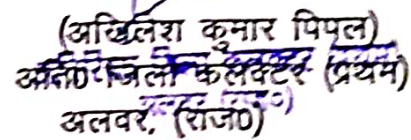 (अखिलेश कुमार पिपल)
अति0 जिला कलक्टर (प्रथम)
अलवर, (राज0)